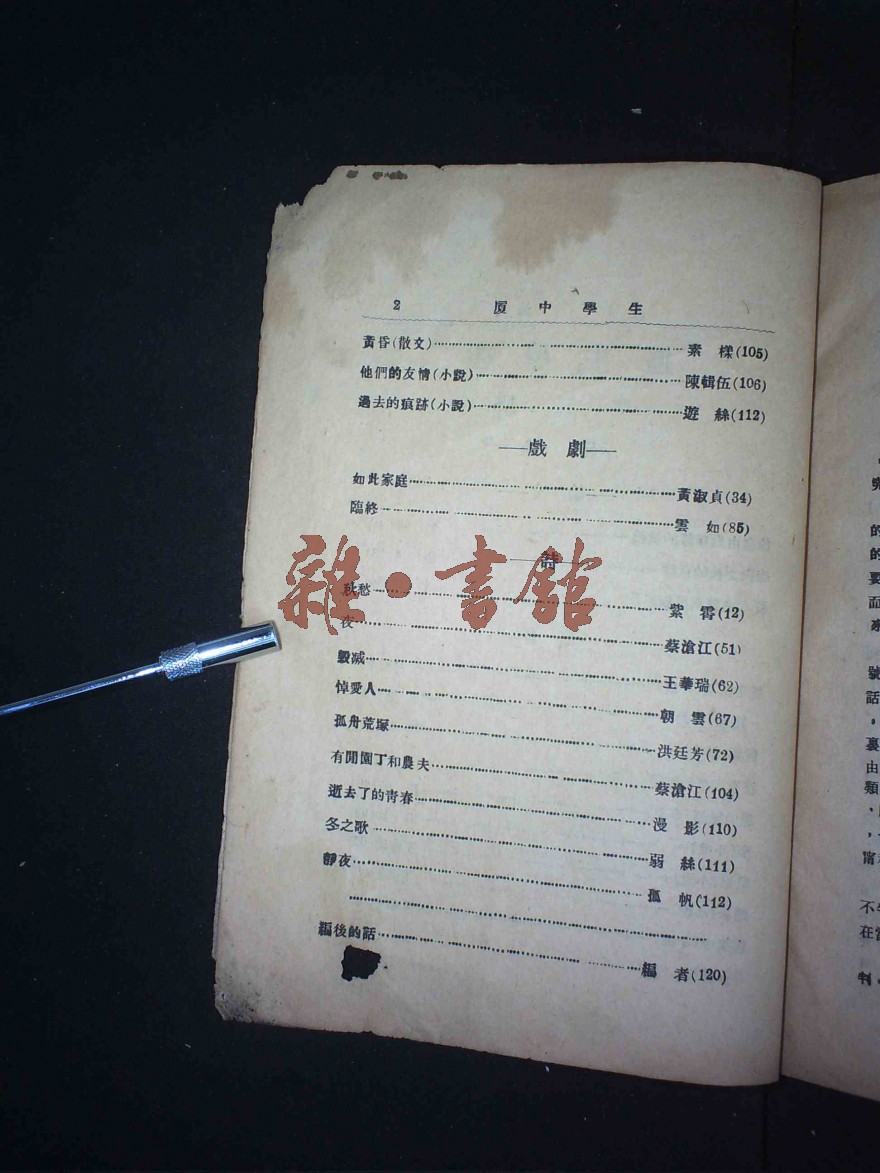 2 厦中學生
黃昏(散文)……素樣(105)
他們的友情(小說)……陳輯伍(106)
過去的痕跡(小說)……遊絲(112)
——戲劇——
如此家庭……黃淑貞(34)
臨終……雲如(85)
詩
秋愁……紫霄(12)
夜……蔡滄江(51)
毀滅……王華瑞(62)
悼愛人……朝雲(67)
孤舟荒塚……洪廷芳(72)
有閒園丁和農夫……蔡滄江(104)
逝去了的青春……漫影(110)
冬之歌……弱絲(111)
靜夜……孤帆(112)
編後的話……編者(120)
雜·書館
的
的
要
面
家
號
話
裏
由
類
甯
不
在
刊